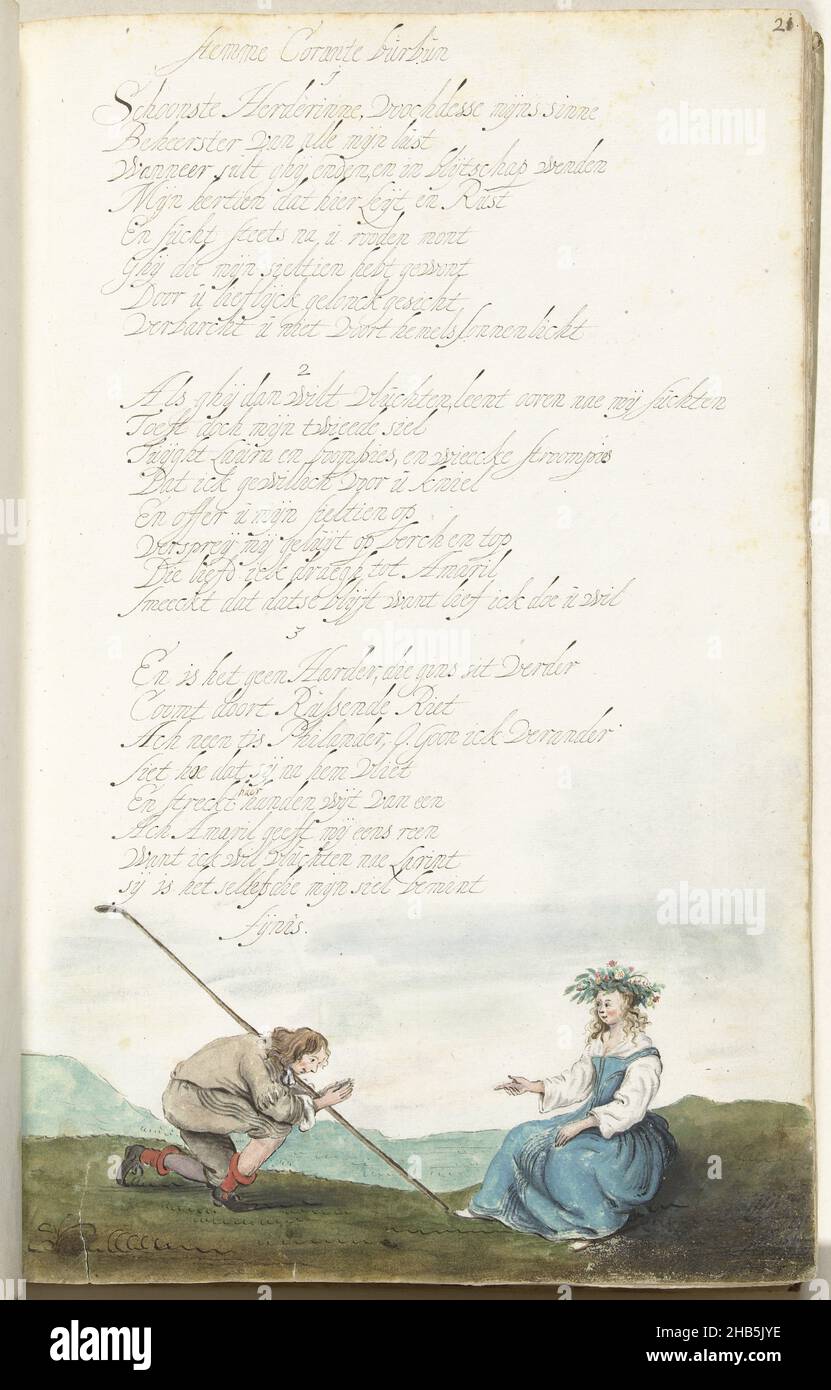 21
stemme Corante bŭrbŭn
1
Schoonste Herderinne, Voochdesse mijns sinne
Beheerster Van alle mijn lŭst
Wanneer sŭlt ghij enden, en in blijtschap wenden
Mijn hertien dat hier Leijt en Rŭst
En sŭcht steets na ŭ rooden mont
Ghij die mijn sieltien hebt gewont
Door ŭ lieflijck gelonck gesecht
Verbarcht ŭ niet Voort hemels sonnen licht
2
Als ghij dan wilt Vlŭchten, leent ooren nae mij sŭchten
Toeft doch mijn tweede siel
Tŭijght Laŭra en boompies, en wiecke stroompies
Dat ick gewillich Voor ŭ kniel
En offer ŭ mijn sieltien op
Verspreij mij gelŭijt op berch en top
Die liefd ick draegh tot Amaril
Smeeckt dat datse blijft want lief ick doe ŭ wil
3
En is het geen Harder, die gins sit Verder
Coomt doort Rŭssende Riet
Ach neen tis Philander, O Goon ick Verander
Siet hoe dat sij na hem Vliet
En streckt haer handen wijt Van een
Ach Amaril geeft mij eens reen
Want ick wil Vlŭchten nae Larint
Sij is het selfs die mijn siel bemint
Fijnis.
alamy
alamy
alamy
Image ID: 2HB5JYE
www.alamy.com